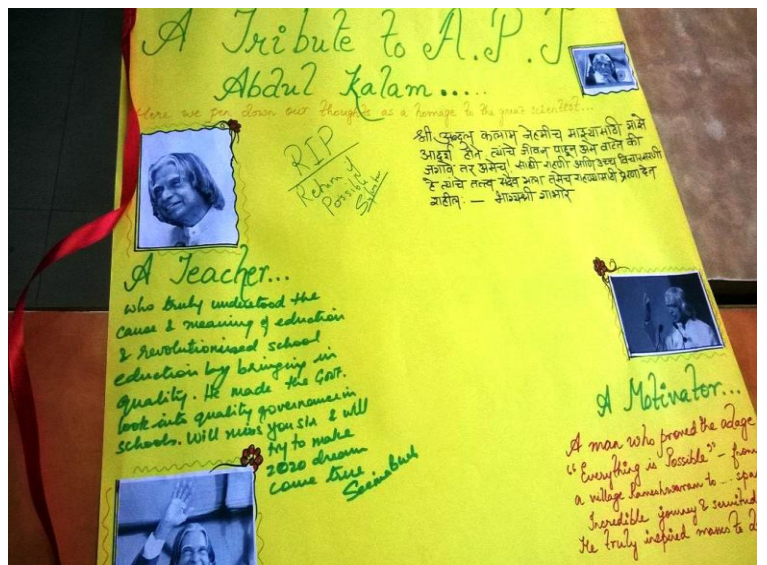 A Tribute to A.P.J
Abdul Kalam.....
Here we pen down our thoughts as a homage to the great scientist...
RIP
Return if
Possible
श्री अब्दुल कलाम नेहमीच माझ्यासाठी
आदर्श होते त्यांचे जीवन पाहून असे वाटते की
जगावे तर असेच! साधी राहणी आणि उच्च विचारसरणी
हे त्यांचे तत्त्व सदैव मला तसेच प्रेरणा देत
राहील. — भाग्यश्री
A Teacher...
who truly understood the
cause & meaning of eduction
& revolutionised school
eduction by bringing in
quality. He made the Govt.
look into quality governance in
schools. Will miss you sir & will
try to make
2020 dream
come true
A Motivator...
A man who proved the adage
"Everything is Possible" – from
a village Rameshwaram to ... spa
Incredible journey &
He truly inspired masses to d